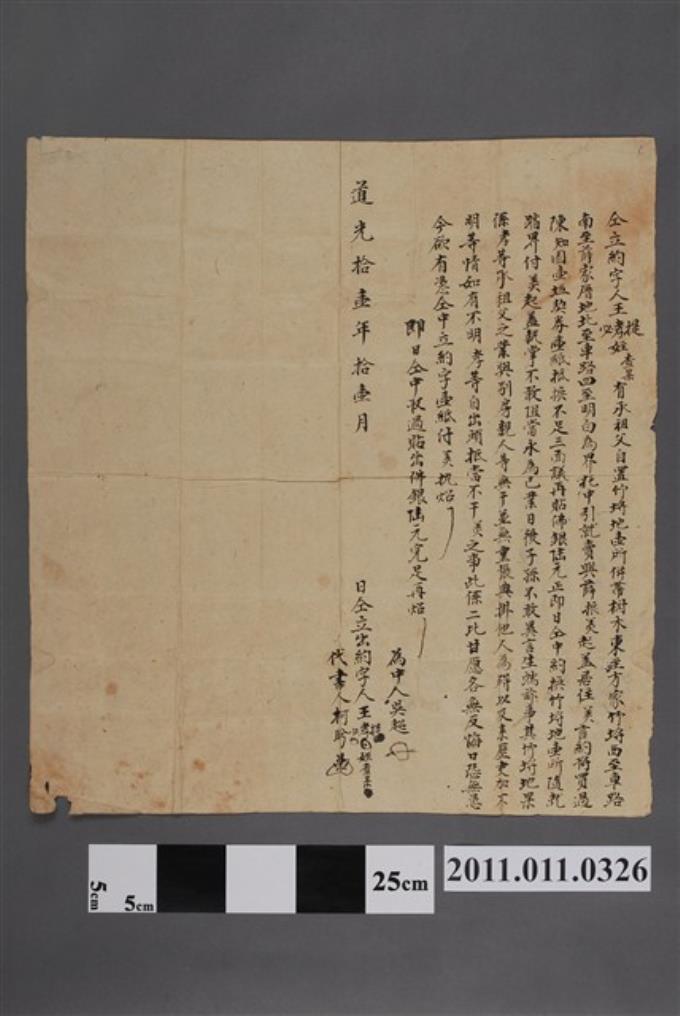 仝立約字人王提孝必姪看菜有承祖父自置竹塆地壹所併帶樹木東至方家竹塆西至車路
南至薛家厝地北至車路四至明白為界托中引就賣與薛振美起蓋居住美言約將買過
陳知園壹坵契券壹紙抵換不足三面議再貼佛銀陸元正即日仝中約換竹塆地壹所隨就
踏界付美起蓋執掌不敢阻當永為己業日後子孫不敢異言生端滋事其竹塆地果
係孝等承祖父之業與別房親人等無干並無重張典掛他人為碍以及來歷交加不
明等情如有不明孝等自出頭抵當不干美之事此係二比甘愿各無反悔口恐無憑
今欲有憑仝中立約字壹紙付美執炤
即日仝中收過貼出佛銀陸元完足再炤
為中人吳超
道光拾壹年拾壹月 日仝立出約字人王提孝必姪看菜
代書人柯
2011.011.0326
5cm
5cm
25cm